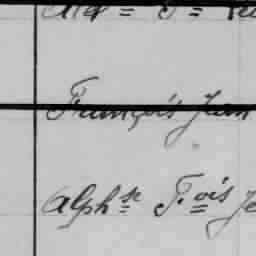 François Jean
Alph.se F.ois Je